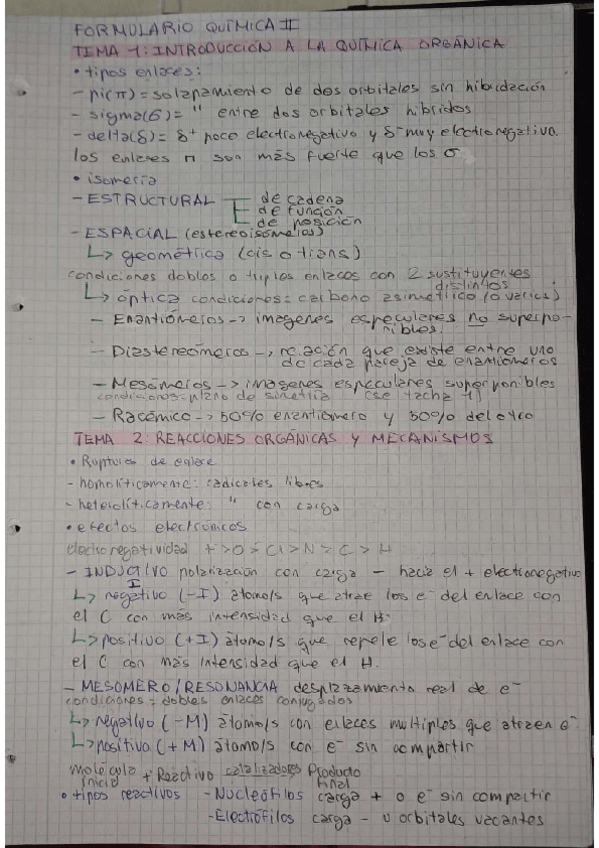 FORMULARIO QUÍMICA II
TEMA 1: INTRODUCCIÓN A LA QUÍMICA ORGÁNICA
• tipos enlaces:
- pi(π) = solapamiento de dos orbitales sin hibridación
- sigma(σ) = " entre dos orbitales híbridos
- delta(δ) = δ+ poco electronegativo y δ- muy electronegativo.
los enlaces π son más fuerte que los σ
• isomería
- ESTRUCTURAL de cadena
de función
de posición
- ESPACIAL (estereoisómeros)
↳ geométrica (cis o trans)
condiciones dobles o triples enlaces con 2 sustituyentes distintos
↳ óptica condiciones = carbono asimétrico (o varios)
- Enantiómeros -> imágenes especulares no superpo-
nibles.
- Diastereómeros -> relación que existe entre uno
de cada pareja de enantiómeros
- Mesómeros -> imágenes especulares superponibles
condiciones: plano de simetría (se tacha 1)
- Racémico -> 50% enantiómero y 50% del otro
TEMA 2: REACCIONES ORGÁNICAS Y MECANISMOS
• Rupturas de enlace
- homolíticamente: radicales libres
- heterolíticamente: " con carga
• efectos electrónicos
electronegatividad F > O > Cl > N > C > H
- INDUCTIVO polarización con carga - hacia el + electronegativo
↳ negativo (-I) átomo/s que atrae los e- del enlace con
el C con más intensidad que el H.
↳ positivo (+I) átomo/s que repele los e- del enlace con
el C con más intensidad que el H.
- MESÓMERO/RESONANCIA desplazamiento real de e-
condiciones = dobles enlaces conjugados
↳ negativo (-M) átomo/s con enlaces múltiples que atraen e-
↳ positivo (+M) átomo/s con e- sin compartir
molécula inicial + Reactivo catalizadores Producto final
• tipos reactivos - Nucleófilos carga + o e- sin compartir
- Electrófilos carga - u orbitales vacantes